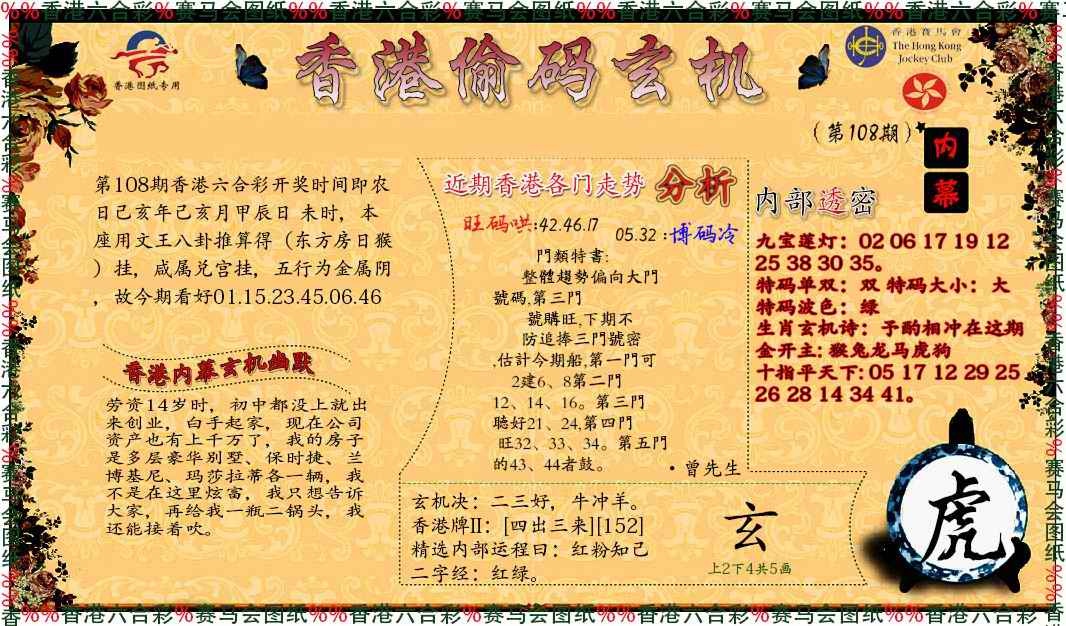 %%香港六合彩%赛马会图纸%%香港六合彩%赛马会图纸%%香港六合彩%赛马会图纸%%香港六合彩%赛
香港图纸专用
香港偷码玄机
香港賽馬會
The Hong Kong
Jockey Club
(第108期)
内
幕
第108期香港六合彩开奖时间即农
日己亥年己亥月甲辰日 未时，本
座用文王八卦推算得（东方房日猴
）挂，咸属兑宫挂，五行为金属阴
，故今期看好01.15.23.45.06.46
香港内幕玄机幽默
劳资14岁时，初中都没上就出
来创业，白手起家，现在公司
资产也有上千万了，我的房子
是多层豪华别墅、保时捷、兰
博基尼、玛莎拉蒂各一辆，我
不是在这里炫富，我只想告诉
大家，再给我一瓶二锅头，我
还能接着吹。
近期香港各门走势 分析
旺码哄:42.46.17
05.32 :博码冷
門類特書:
整體趨勢偏向大門
號碼,第三門
號購旺,下期不
防追捧三門號密
,估計今期船,第一門可
2建6、8第二門
12、14、16。第三門
聽好21、24,第四門
旺32、33、34。第五門
的43、44者鼓。
·曾先生
内部透密
九宝莲灯：02 06 17 19 12
25 38 30 35。
特码单双：双 特码大小：大
特码波色：绿
生肖玄机诗：予酌相冲在这期
金开主: 猴兔龙马虎狗
十指平天下: 05 17 12 29 25
26 28 14 34 41。
玄机决：二三好，牛冲羊。
香港牌II：[四出三来][152]
精选内部运程曰：红粉知己
二字经：红绿。
玄
上2下4共5画
虎
香%%香港六合彩%赛马会图纸%%香港六合彩%赛马会图纸%%香港六合彩%赛马会图纸%%香港六合彩%